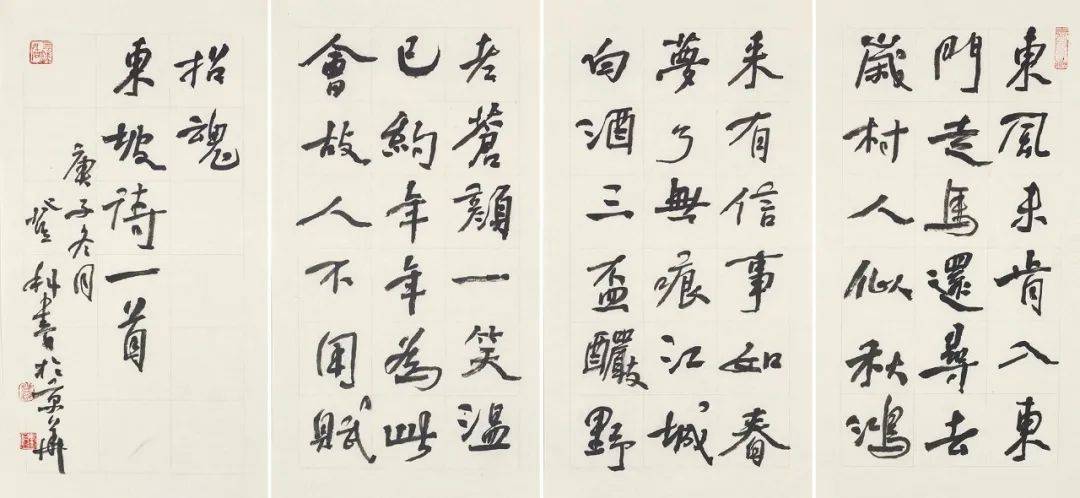 東風未肯入東
門走馬還尋去
歲村人似秋鴻
来有信事如春
夢了無痕江城
白酒三盃釅野
老蒼顏一笑温
已約年年為此
會故人不用賦
招魂
東坡詩一首
庚子冬月
登科書於京華